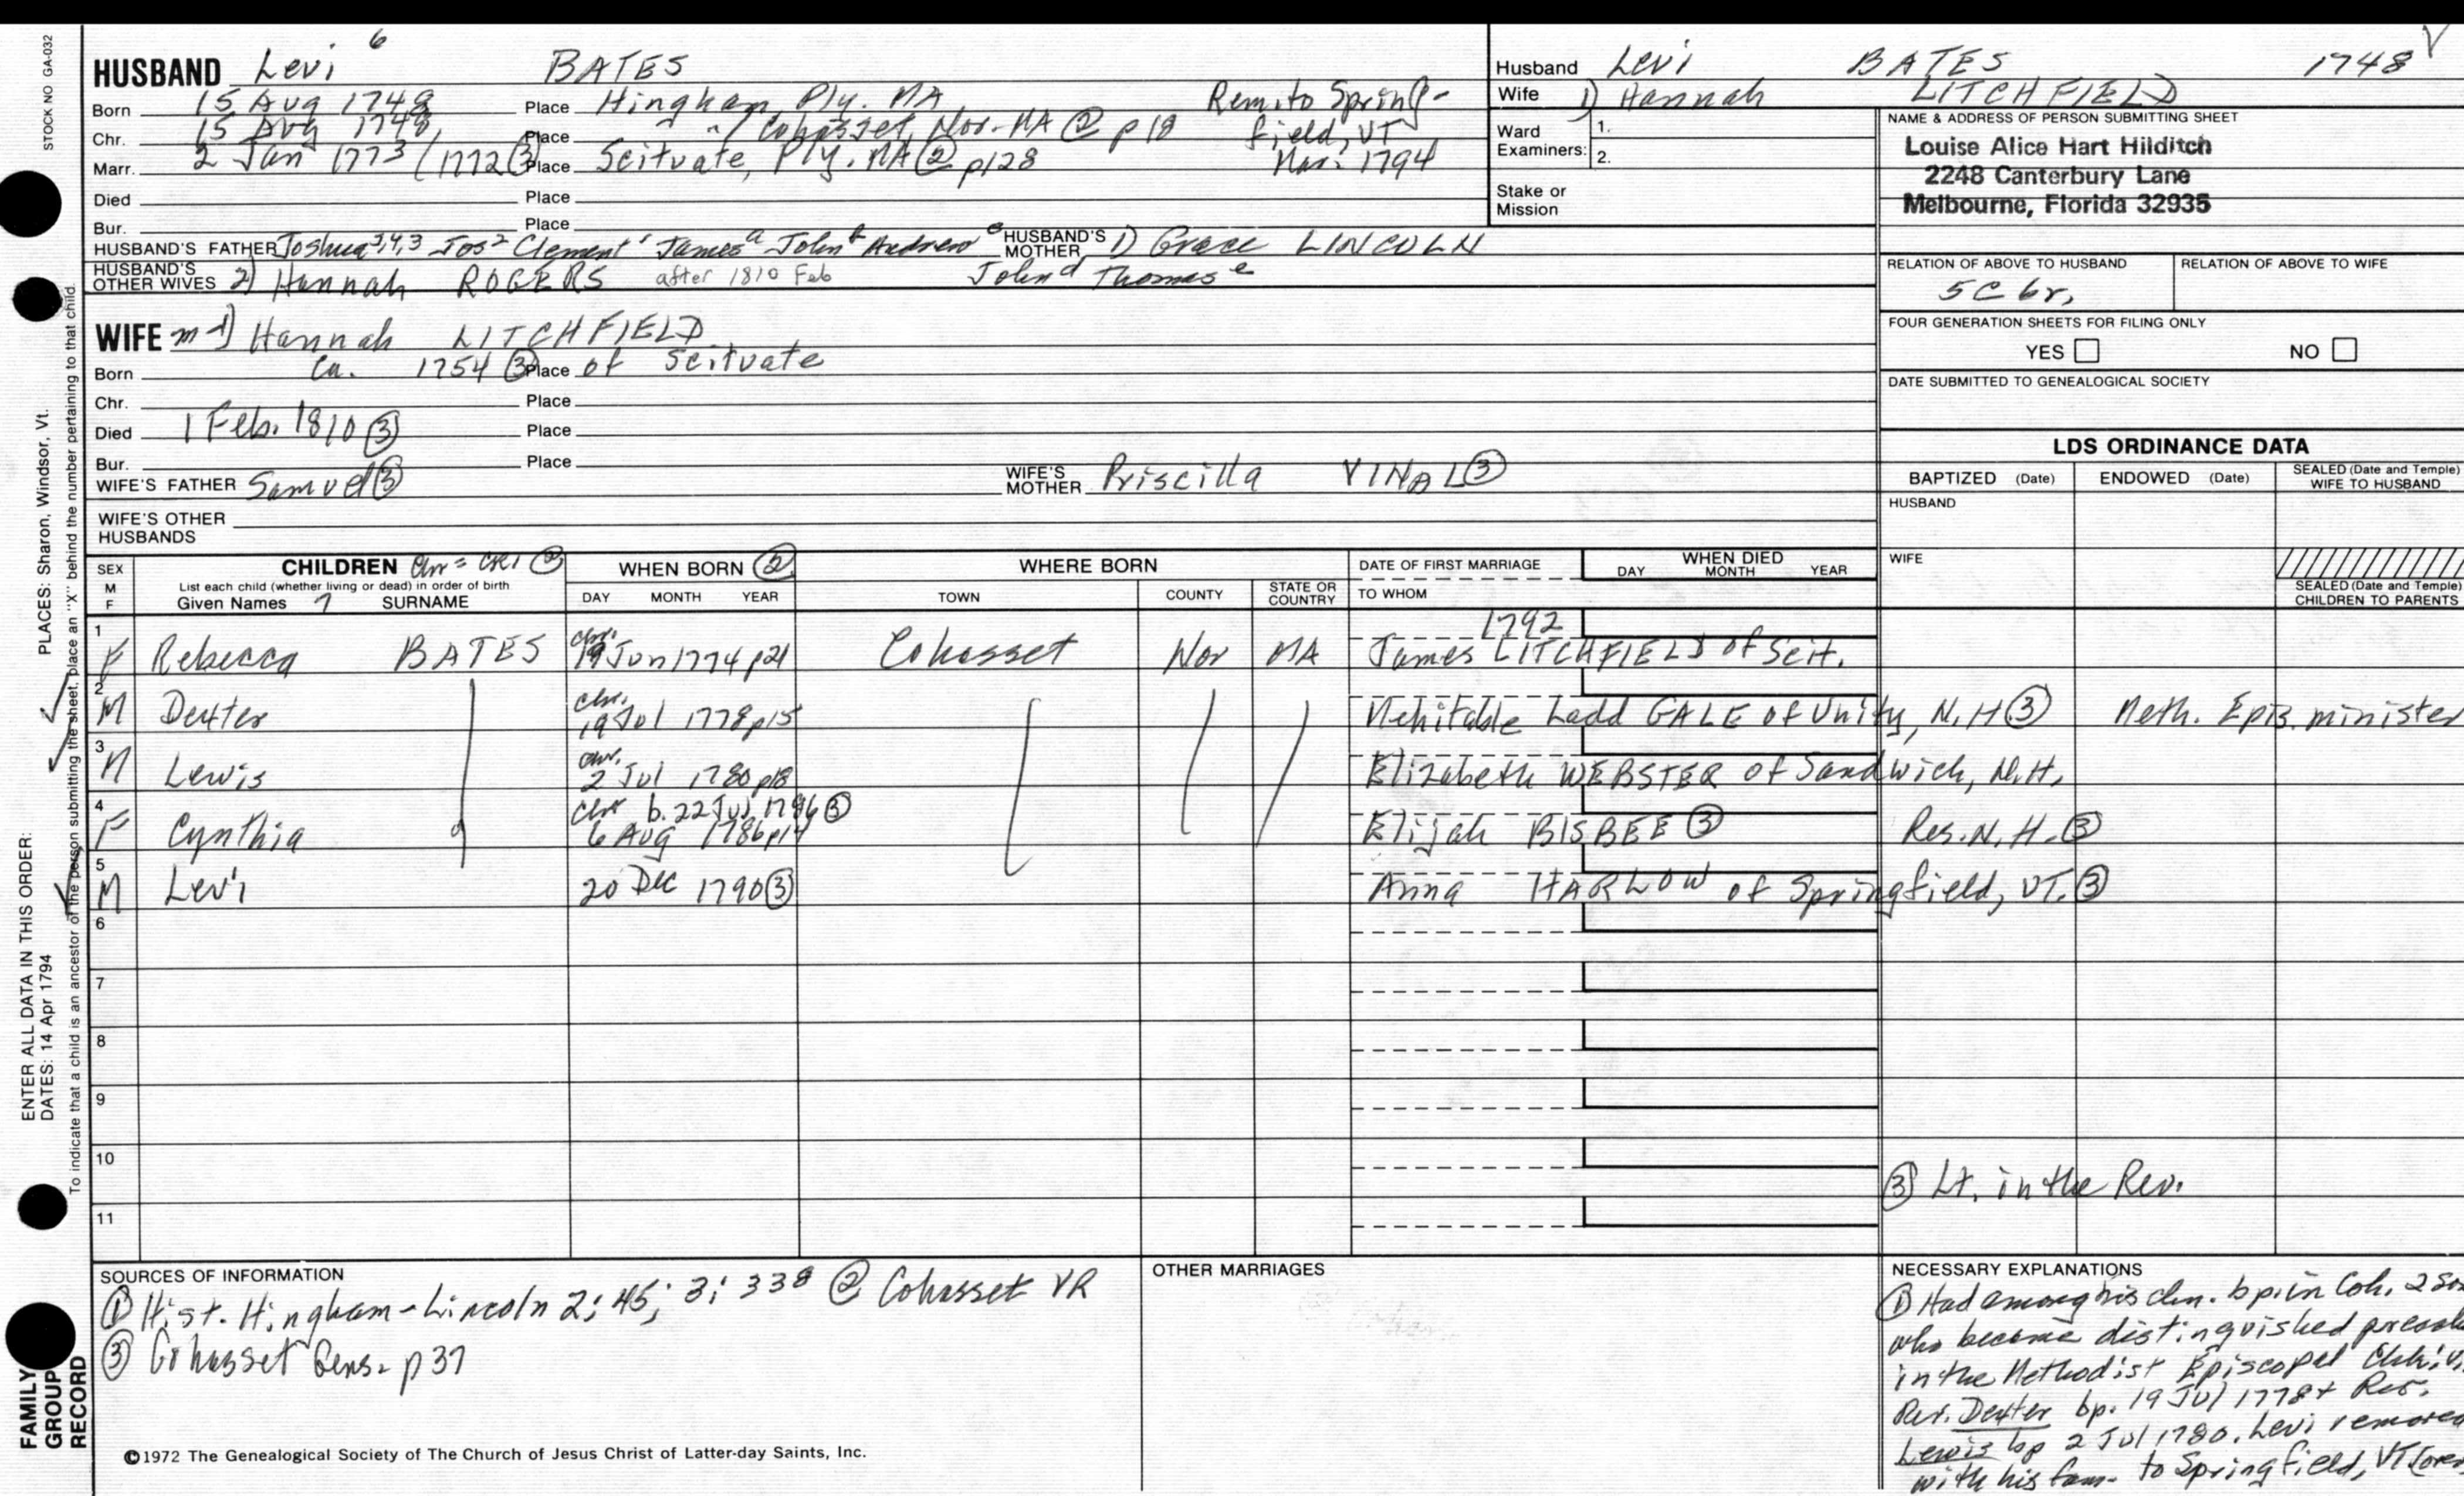 STOCK NO GA-032
HUSBAND Levi 6 BATES
Born 15 Aug 1748 Place Hingham, Ply. MA Rem. to Spring-
Chr. 15 Aug 1748, Place " / Cohasset, Nor. MA ② p 18 field, VT
Marr. 2 Jan 1773 / (1772 ③ Place Scituate, Ply. MA ② p128 Mar. 1794
Died Place
Bur. Place
HUSBAND'S FATHER Joshua 3,4,3 Jos 2 Clement 1 James a John b Andrew c HUSBAND'S MOTHER 1) Grace LINCOLN
HUSBAND'S OTHER WIVES 2) Hannah ROGERS after 1810 Feb John d Thomas e
WIFE m 1) Hannah LITCHFIELD
Born Ca. 1754 ③ Place of Scituate
Chr. Place
Died 1 Feb. 1810 ③ Place
Bur. Place
WIFE'S FATHER Samuel ③ WIFE'S MOTHER Priscilla VINAL ③
WIFE'S OTHER HUSBANDS
Husband Levi BATES 1748 V
Wife 1) Hannah LITCHFIELD
Ward Examiners: 1.
2.
Stake or Mission
NAME & ADDRESS OF PERSON SUBMITTING SHEET
Louise Alice Hart Hilditch
2248 Canterbury Lane
Melbourne, Florida 32935
RELATION OF ABOVE TO HUSBAND RELATION OF ABOVE TO WIFE
5C 6r,
FOUR GENERATION SHEETS FOR FILING ONLY
YES NO
DATE SUBMITTED TO GENEALOGICAL SOCIETY
LDS ORDINANCE DATA
BAPTIZED (Date) ENDOWED (Date) SEALED (Date and Temple) WIFE TO HUSBAND
HUSBAND
WIFE
SEALED (Date and Temple) CHILDREN TO PARENTS
SEX M F CHILDREN WHEN BORN ② WHERE BORN DATE OF FIRST MARRIAGE WHEN DIED
List each child (whether living or dead) in order of birth
Given Names 7 SURNAME DAY MONTH YEAR TOWN COUNTY STATE OR COUNTRY TO WHOM DAY MONTH YEAR
1 F Rebecca BATES chr. 19 Jun 1774 p21 Cohasset Nor MA 1792 James LITCHFIELD of Scit.
2 M Dexter chr. 19 Jul 1778 p15 Mehitable Ladd GALE of Unity, N.H ③ Meth. Epis. minister
3 M Lewis chr. 2 Jul 1780 p18 Elizabeth WEBSTER of Sandwich, N.H,
4 F Cynthia chr b. 22 Jul 1786 ③ 6 Aug 1786 p14 Elijah BISBEE ③ Res. N.H. ③
5 M Levi 20 Dec 1790 ③ Anna HARLOW of Springfield, VT. ③
6
7
8
9
10
③ Lt. in the Rev.
11
SOURCES OF INFORMATION
① Hist. Hingham - Lincoln 2: 45; 3: 338 ② Cohasset VR
③ Cohasset Gens. p 37
©1972 The Genealogical Society of The Church of Jesus Christ of Latter-day Saints, Inc.
OTHER MARRIAGES
NECESSARY EXPLANATIONS
① Had among his chn. bp. in Coh. 2
who became distinguished
in the Methodist Episcopal
Rev. Dexter bp. 19 Jul 1778 + Rev.
Lewis bp 2 Jul 1780. Levi removed
with his fam. to Springfield, VT
ENTER ALL DATA IN THIS ORDER: PLACES: Sharon, Windsor, Vt.
DATES: 14 Apr 1794
To indicate that a child is an ancestor of the person submitting the sheet, place an "X" behind the number pertaining to that child.
FAMILY GROUP RECORD